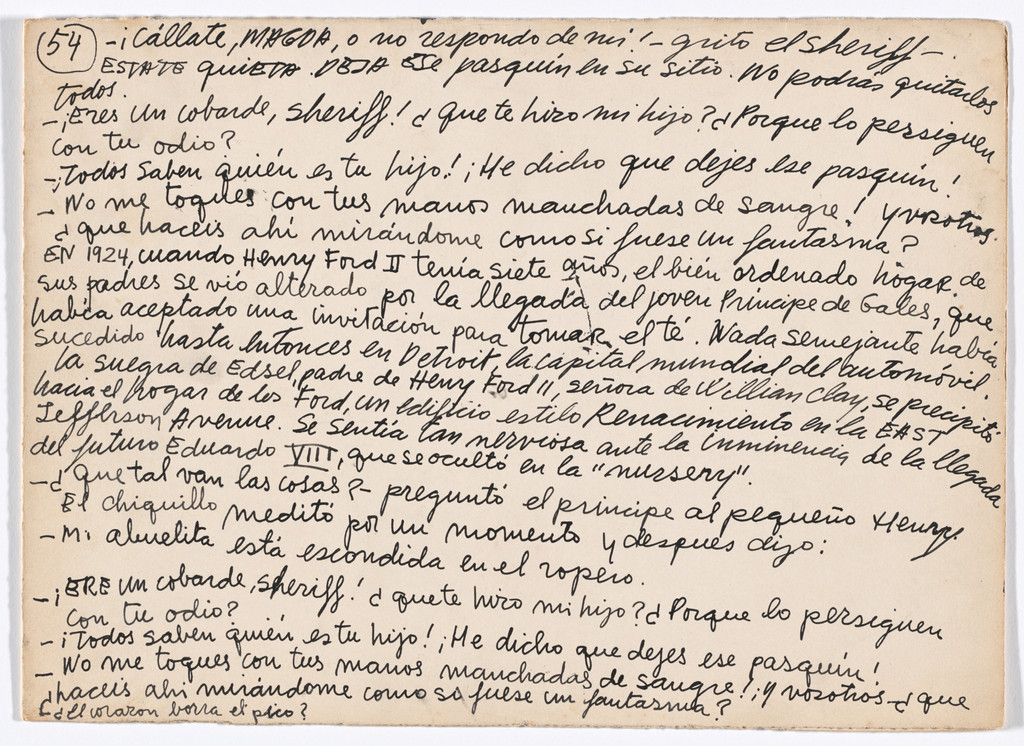 54 -¡Cállate, MAGDA, o no respondo de mi! - grito el sheriff -
ESTATE quiETA DEJA ESE pasquin en su sitio. No podrás quitarlos
todos.
-¡Eres un cobarde, sheriff! ¿Que te hizo mi hijo? ¿Porque lo persiguen
con tu odio?
-¡Todos saben quién es tu hijo! ¡He dicho que dejes ese pasquín!
- No me toques con tus manos manchadas de sangre! y vosotros
¿que haceis ahí mirándome como si fuese un fantasma?
EN 1924, cuando Henry Ford II tenía siete años, el bién ordenado hogar de
sus padres se vió alterado por la llegada del joven Príncipe de Gales, que
había aceptado una invitación para tomar el té. Nada semejante había
sucedido hasta entonces en Detroit, la capital mundial del automóvil.
La suegra de Edsel, padre de Henry Ford II, señora de Willian Clay, se precipitó
hacia el hogar de los Ford, un edificio estilo Renacimiento en la EAST
Jefferson Avenue. Se sentía tan nerviosa ante la inminencia de la llegada
del futuro Eduardo VIII, que se ocultó en la "nursery".
-¿Que tal van las cosas? - preguntó el principe al pequeño Henry
El chiquillo meditó por un momento y despues dijo:
- Mi abuelita está escondida en el ropero.
-¡ERE un cobarde, sheriff! ¿que te hizo mi hijo? ¿Porque lo persiguen
con tu odio?
-¡Todos saben quién es tu hijo! ¡He dicho que dejes ese pasquín!
- No me toques con tus manos manchadas de sangre! ¡y vosotros - ¿que
haceis ahi mirándome como si fuese un fantasma?
¿El corazon borra el pico?